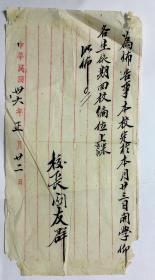 為佈告事本校定於本月廿三日開學仰
各生依期回校编位上課
此佈
校長周友群
中華民國卅六年正月廿二日